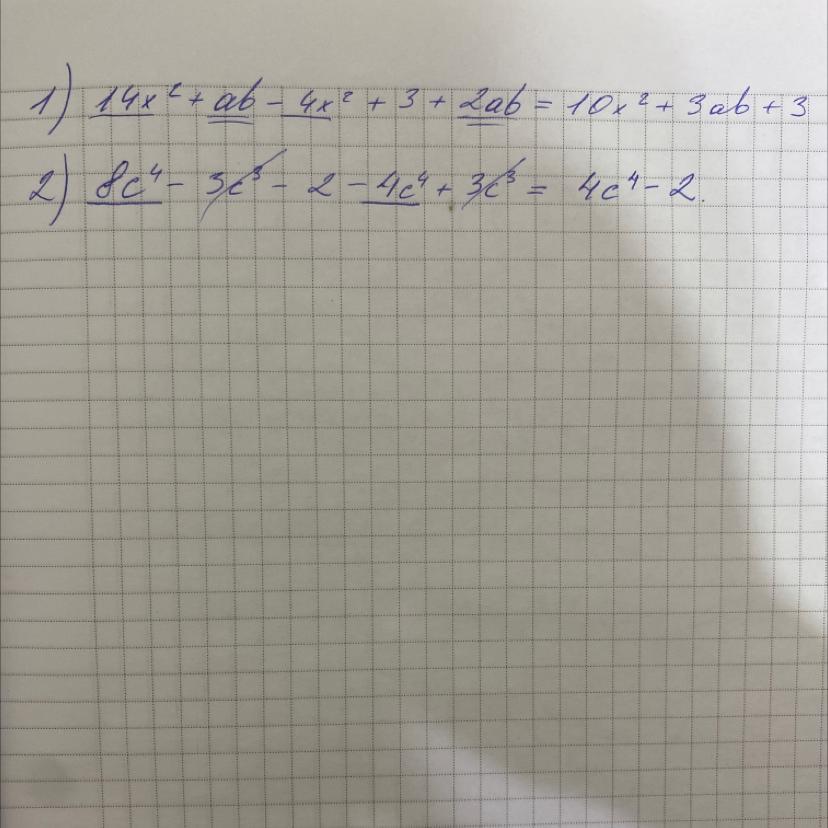 1) 14x² + ab - 4x² + 3 + 2ab = 10x² + 3ab + 3
2) 8c⁴ - 3c³ - 2 - 4c⁴ + 3c³ = 4c⁴ - 2.